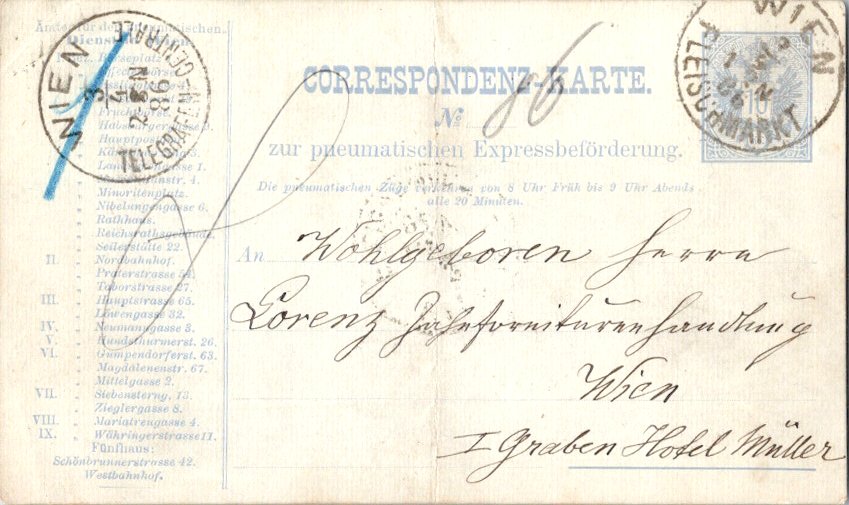 Ämter für den pneumatischen
Dienst in Wien.
I. Börseplatz
Fruchtbörse
Habsburgergasse 9.
Hauptpost
Minoritenplatz.
Nibelungengasse 6.
Rathhaus.
Reichsrathsgebäude.
Seilerstätte 22.
II. Nordbahnhof.
" Praterstrasse 54.
" Taborstrasse 27.
III. Hauptstrasse 65.
" Löwengasse 32.
IV. Neumangasse 3.
V. Hundsthurmerst. 26.
VI. Gumpendorferst. 63.
" Magdalenenstr. 67.
" Mittelgasse 2.
VII. Siebensterng. 13.
" Zieglergasse 8.
VIII. Mariatreugasse 4.
IX. Währingerstrasse 11.
Fünfhaus:
Schönbrunnerstrasse 42.
Westbahnhof.
WIEN
TELEGRAFEN-CENTRALE
WIEN
FLEISCHMARKT
10
CORRESPONDENZ-KARTE.
No
86
zur pneumatischen Expressbeförderung.
Die pneumatischen Züge verkehren von 8 Uhr Früh bis 9 Uhr Abends
alle 20 Minuten.
An Wohlgeboren Herrn
Lorenz Zahnfourniturenhandlung
Wien
I Graben Hotel Müller